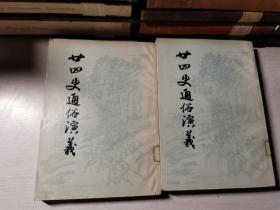 廿四史通俗演義
廿四史通俗演義